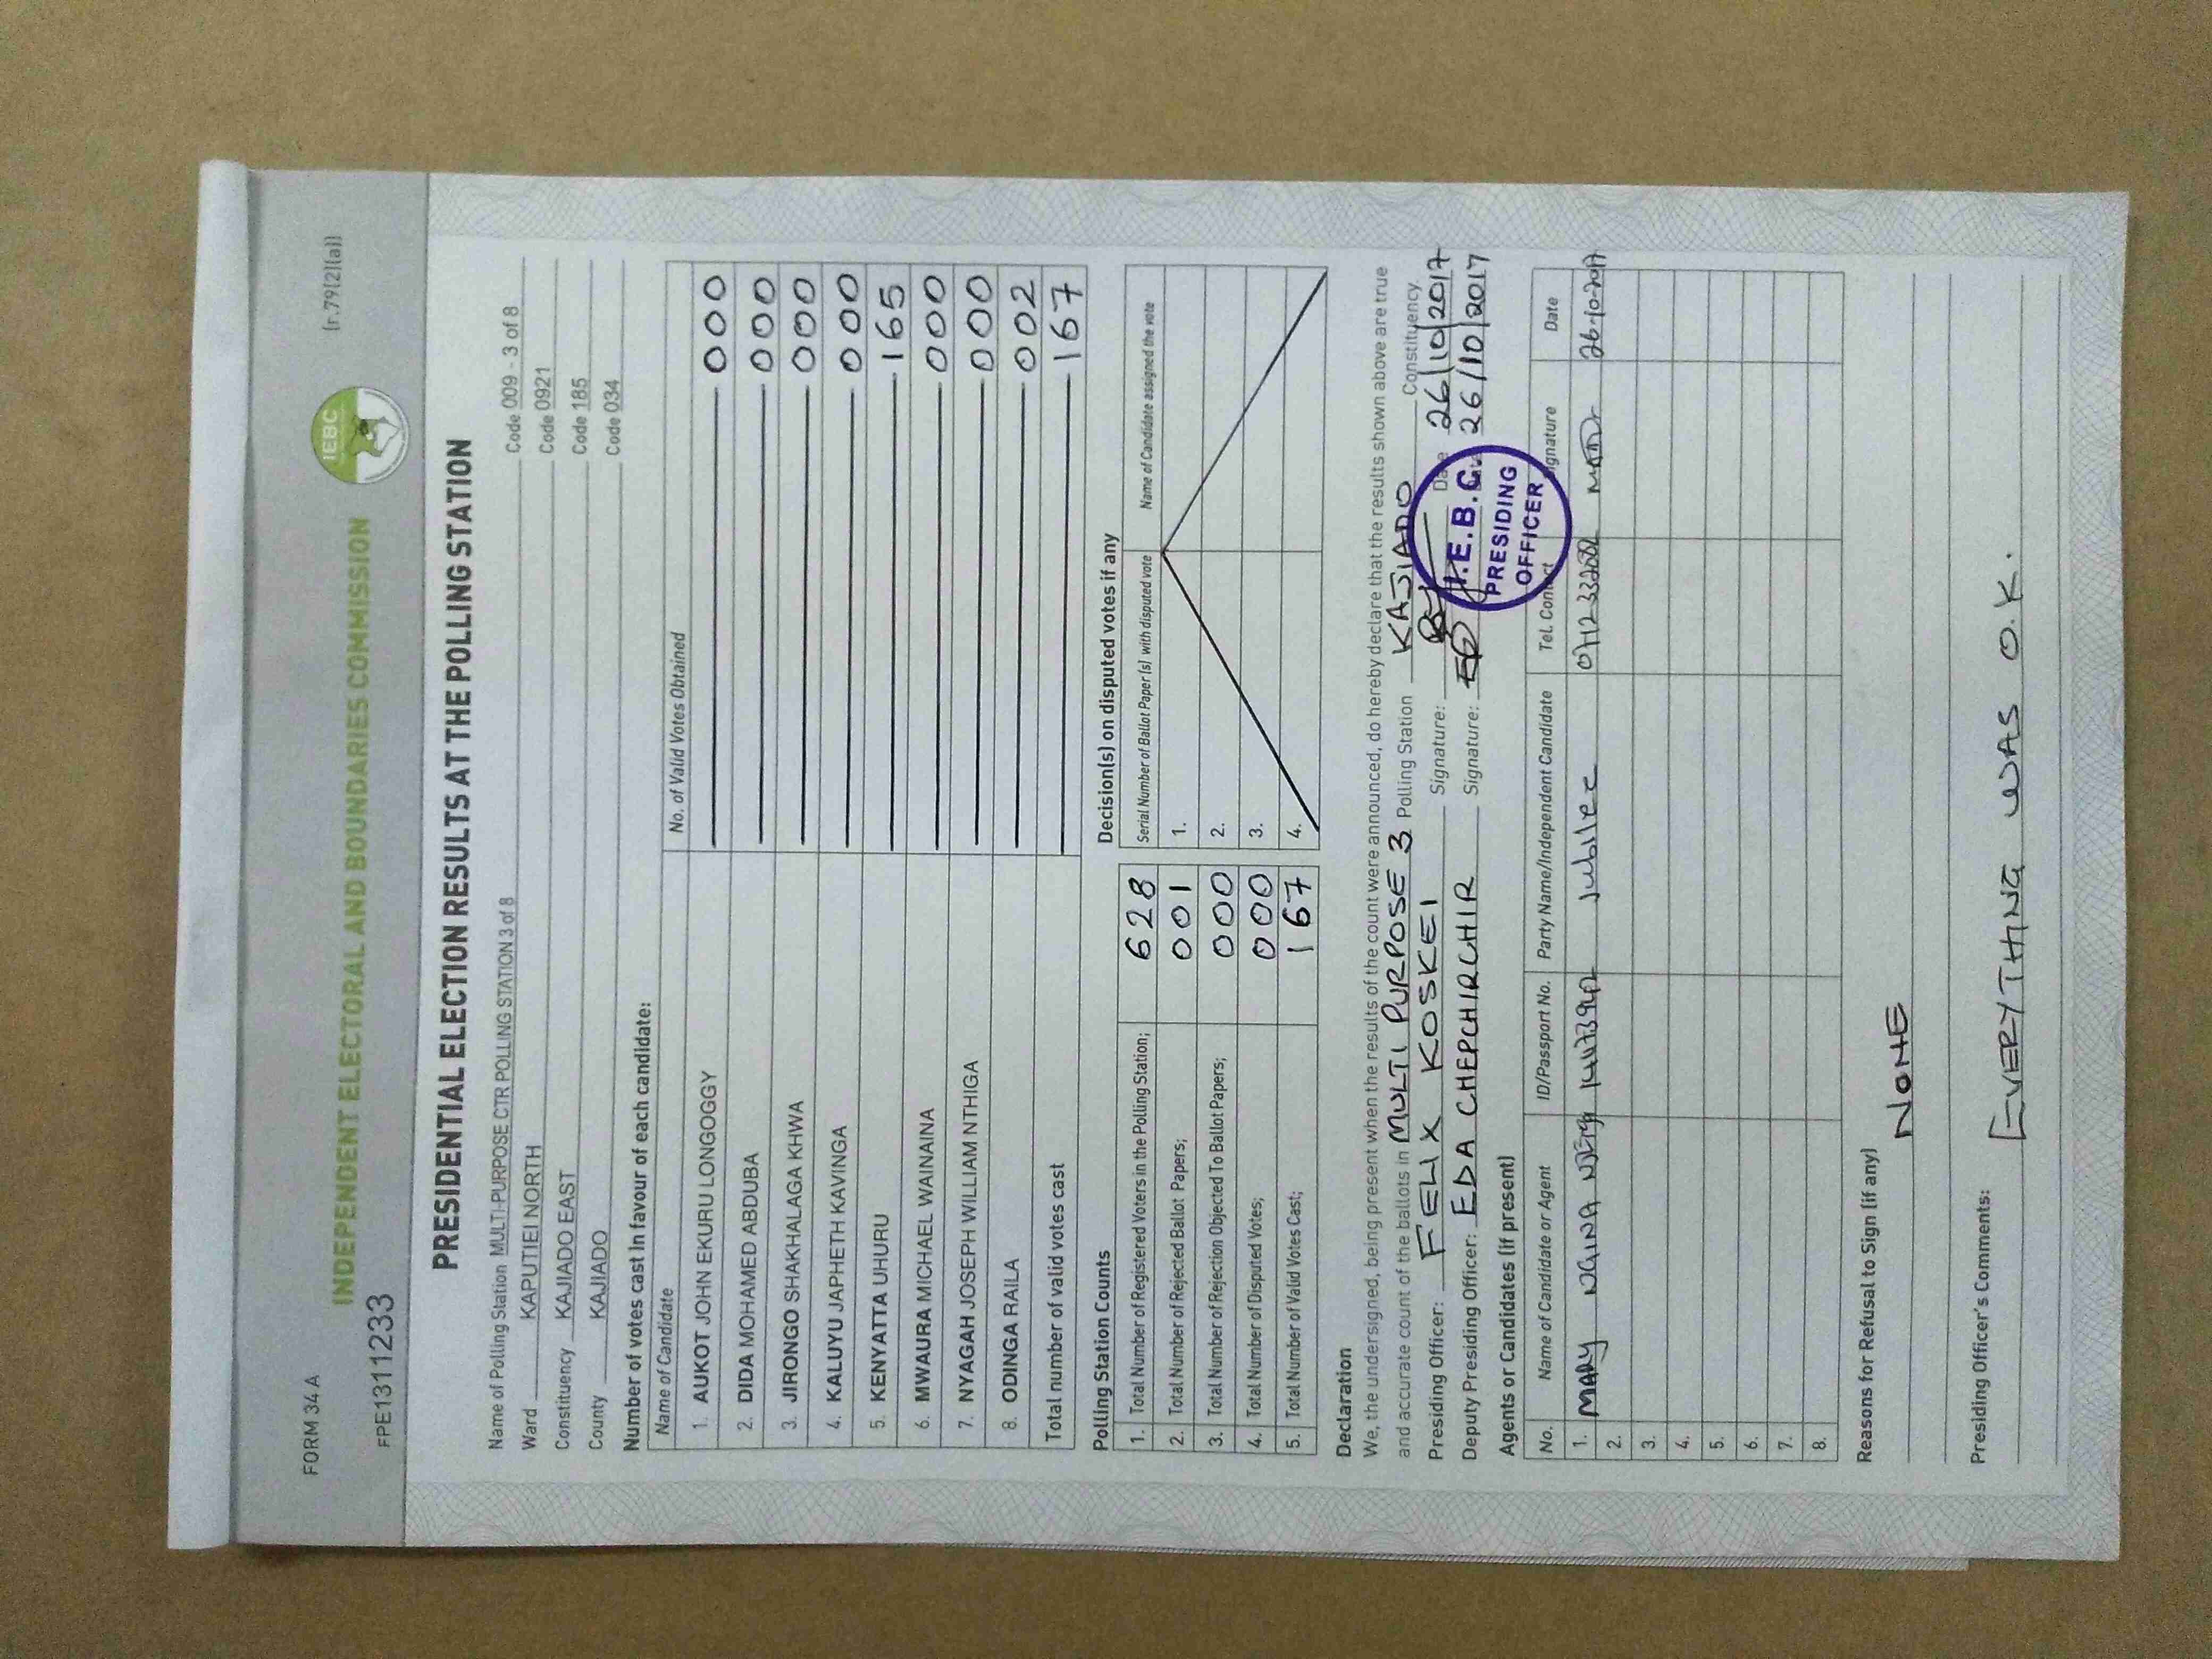 FORM 34 A
(r.79(2)(a))
FPE1311233
IEBC
INDEPENDENT ELECTORAL AND BOUNDARIES COMMISSION
PRESIDENTIAL ELECTION RESULTS AT THE POLLING STATION
Name of Polling Station MULTI-PURPOSE CTR POLLING STATION 3 of 8 Code 009 - 3 of 8
Ward KAPUTIEI NORTH Code 0921
Constituency KAJIADO EAST Code 185
County KAJIADO Code 034
Number of votes cast in favour of each candidate:
Name of Candidate No. of Valid Votes Obtained
1. AUKOT JOHN EKURU LONGOGGY 000
2. DIDA MOHAMED ABDUBA 000
3. JIRONGO SHAKHALAGA KHWA 000
4. KALUYU JAPHETH KAVINGA 000
5. KENYATTA UHURU 165
6. MWAURA MICHAEL WAINAINA 000
7. NYAGAH JOSEPH WILLIAM NTHIGA 000
8. ODINGA RAILA 002
Total number of valid votes cast 167
Polling Station Counts
1. Total Number of Registered Voters in the Polling Station; 628
2. Total Number of Rejected Ballot Papers; 001
3. Total Number of Rejection Objected To Ballot Papers; 000
4. Total Number of Disputed Votes; 000
5. Total Number of Valid Votes Cast; 167
Decision(s) on disputed votes if any
Serial Number of Ballot Paper (s) with disputed vote Name of Candidate assigned the vote
1.
2.
3.
4.
Declaration
We, the undersigned, being present when the results of the count were announced, do hereby declare that the results shown above are true
and accurate count of the ballots in MULTI PURPOSE 3 Polling Station KAJIADO Constituency.
Presiding Officer: FELIX KOSKEI Signature: Date 26/10/2017
Deputy Presiding Officer: EDA CHEPCHIRCHIR Signature: Date 26/10/2017
I.E.B.C.
PRESIDING
OFFICER
Agents or Candidates (if present)
No. Name of Candidate or Agent ID/Passport No. Party Name/Independent Candidate Tel. Contact Signature Date
1. MARY Jubilee 26-10-2017
2.
3.
4.
5.
6.
7.
8.
Reasons for Refusal to Sign (if any)
NONE
Presiding Officer's Comments:
EVERYTHING WAS O.K.